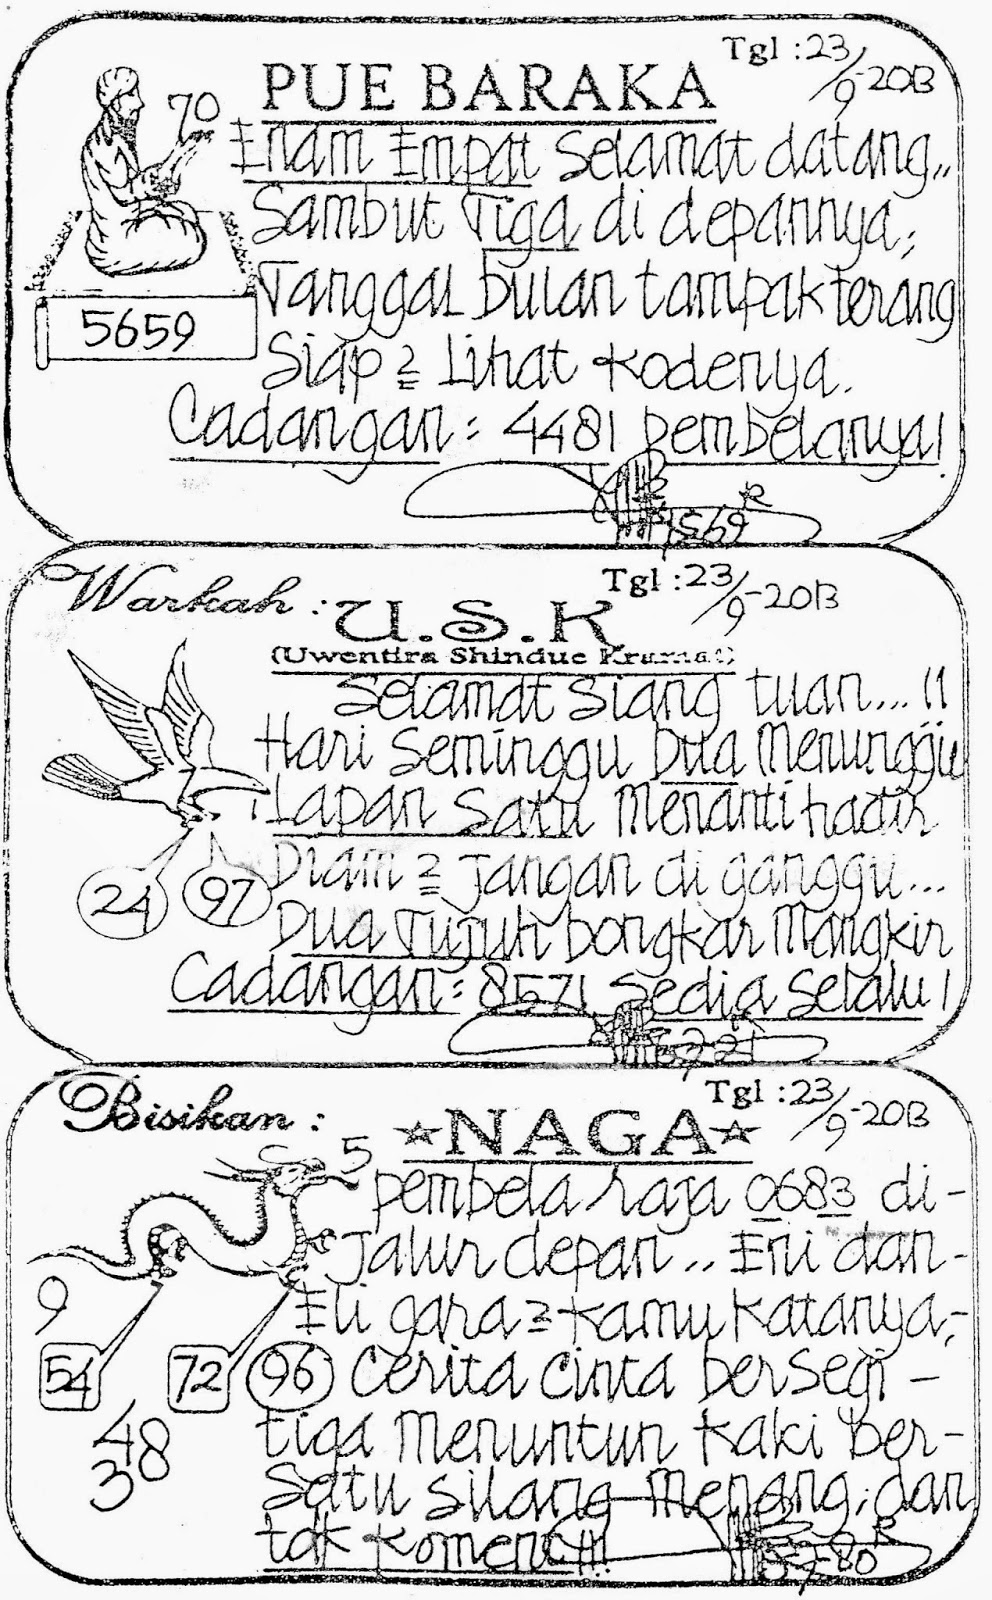 Tgl : 23/9-2013
PUE BARAKA
70
Enam Empat Selamat datang,,
Sambut Tiga di depannya;
Tanggal bulan tampak terang
5659
Siap 2 Lihat kodenya.
Cadangan : 4481 pembelanya!
Warkah :
Tgl : 23/9-2013
U.S.K
(Uwentira Shindue Kramat)
Selamat Siang tuan... !!
Hari Seminggu Dua Menunggu
Lapan Satu Menanti hadir
Diam 2 jangan di ganggu...
24 97
Dua Tujuh bongkar Mangkir
Cadangan : 8571 Sedia Selalu !
Bisikan :
Tgl : 23/9-2013
☆NAGA☆
5
pembela raja 0683 di-
Jalur depan .. Eni dan-
9
Eli gara 2 kamu katanya;-
54 72 96
Cerita Cinta bersegi-
48
tiga Menuntun kaki Ber-
3
Satu Silang Menang; dan
tak koment!!!